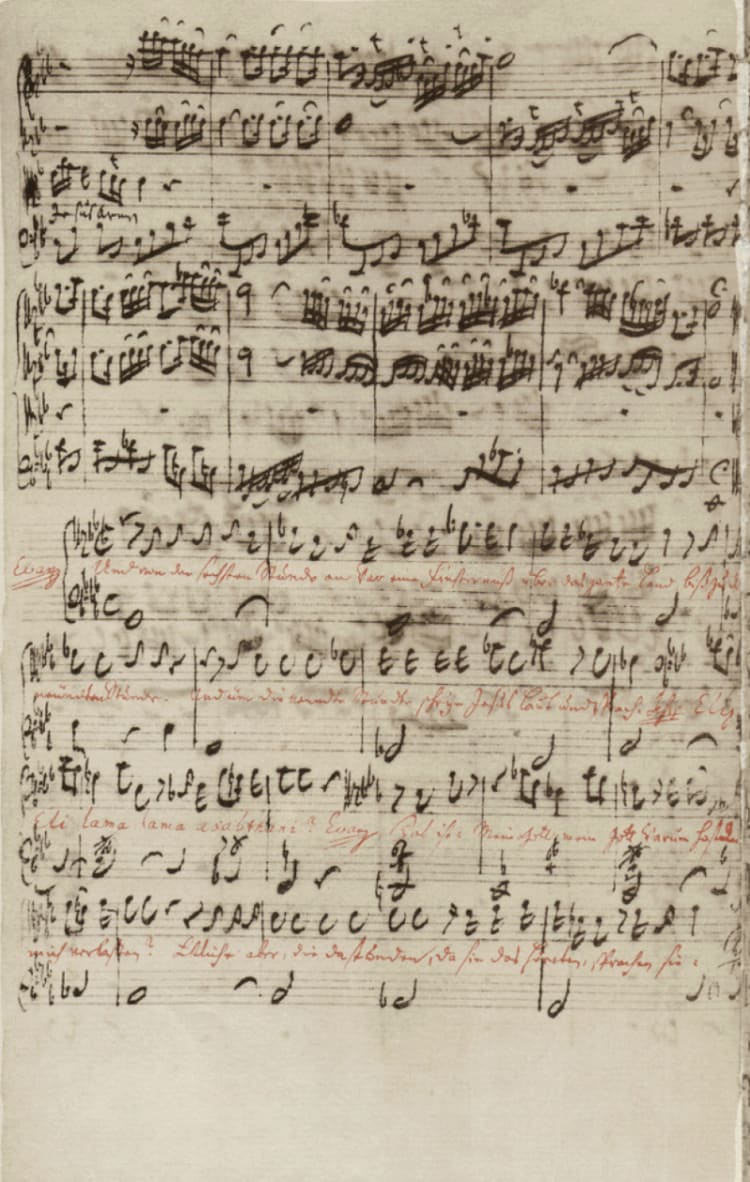 Jesus Armen
Evang Und von der sechsten Stunde an war eine Finsterniß über das gantze Land biß zu der
neundten Stunde. Und um die neundte Stunde schrye Jesus laut und sprach: Jesus Eli,
Eli lama lama asabthani? Evang Das ist: Mein Gott, mein Gott warum hastu
mich verlassen? Etliche aber, die da stunden, da sie das höreten, sprachen sie: